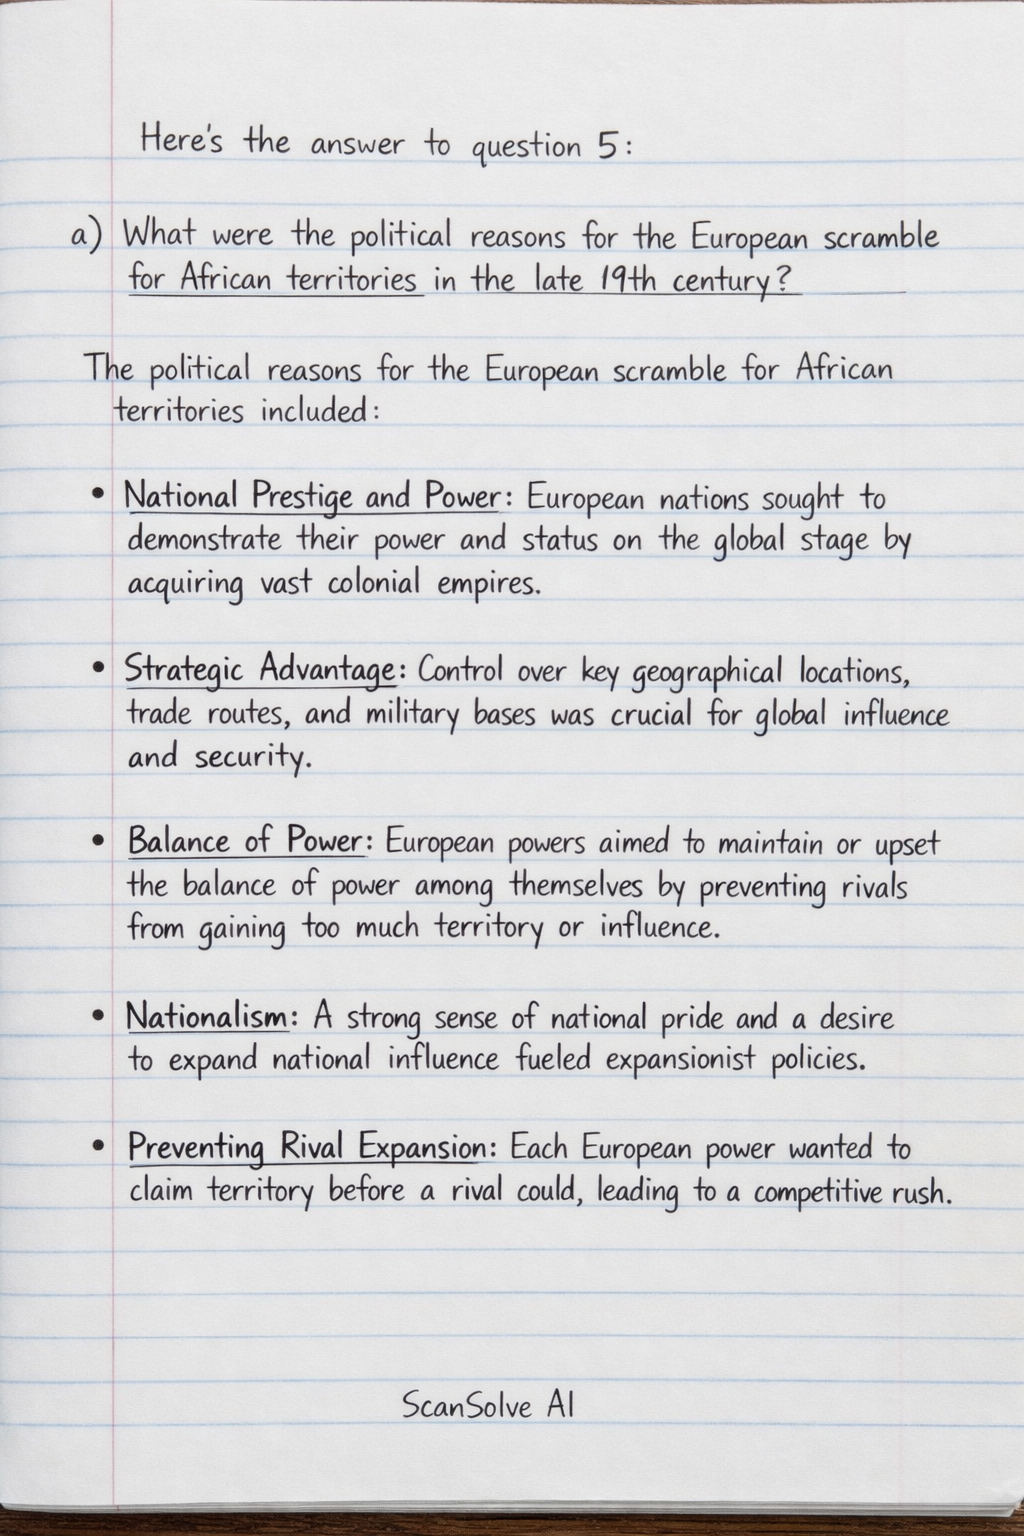 Here's the answer to question 5:
a) What were the political reasons for the European scramble
for African territories in the late 19th century?
The political reasons for the European scramble for African
territories included:
• National Prestige and Power: European nations sought to
demonstrate their power and status on the global stage by
acquiring vast colonial empires.
• Strategic Advantage: Control over key geographical locations,
trade routes, and military bases was crucial for global influence
and security.
• Balance of Power: European powers aimed to maintain or upset
the balance of power among themselves by preventing rivals
from gaining too much territory or influence.
• Nationalism: A strong sense of national pride and a desire
to expand national influence fueled expansionist policies.
• Preventing Rival Expansion: Each European power wanted to
claim territory before a rival could, leading to a competitive rush.
ScanSolve AI